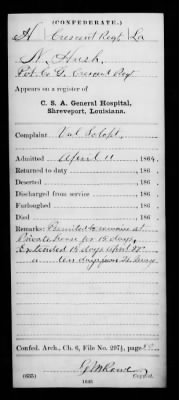 (CONFEDERATE.)
H Crescent Regt La
N. Hush
Pvt. Co. G, Crescent Reg
Appears on a register of
C. S. A. General Hospital,
Shreveport, Louisiana.
Complaint
Admitted April 11, 1864.
Returned to duty , 186 .
Deserted , 186 .
Discharged from service , 186 .
Furloughed , 186 .
Died , 186 .
Remarks: Permitted to remain at
Private house for 15 days.
Extended 15 days
days from
Confed. Arch., Ch. 6, File No. 297½, page
(635)
Copyist.